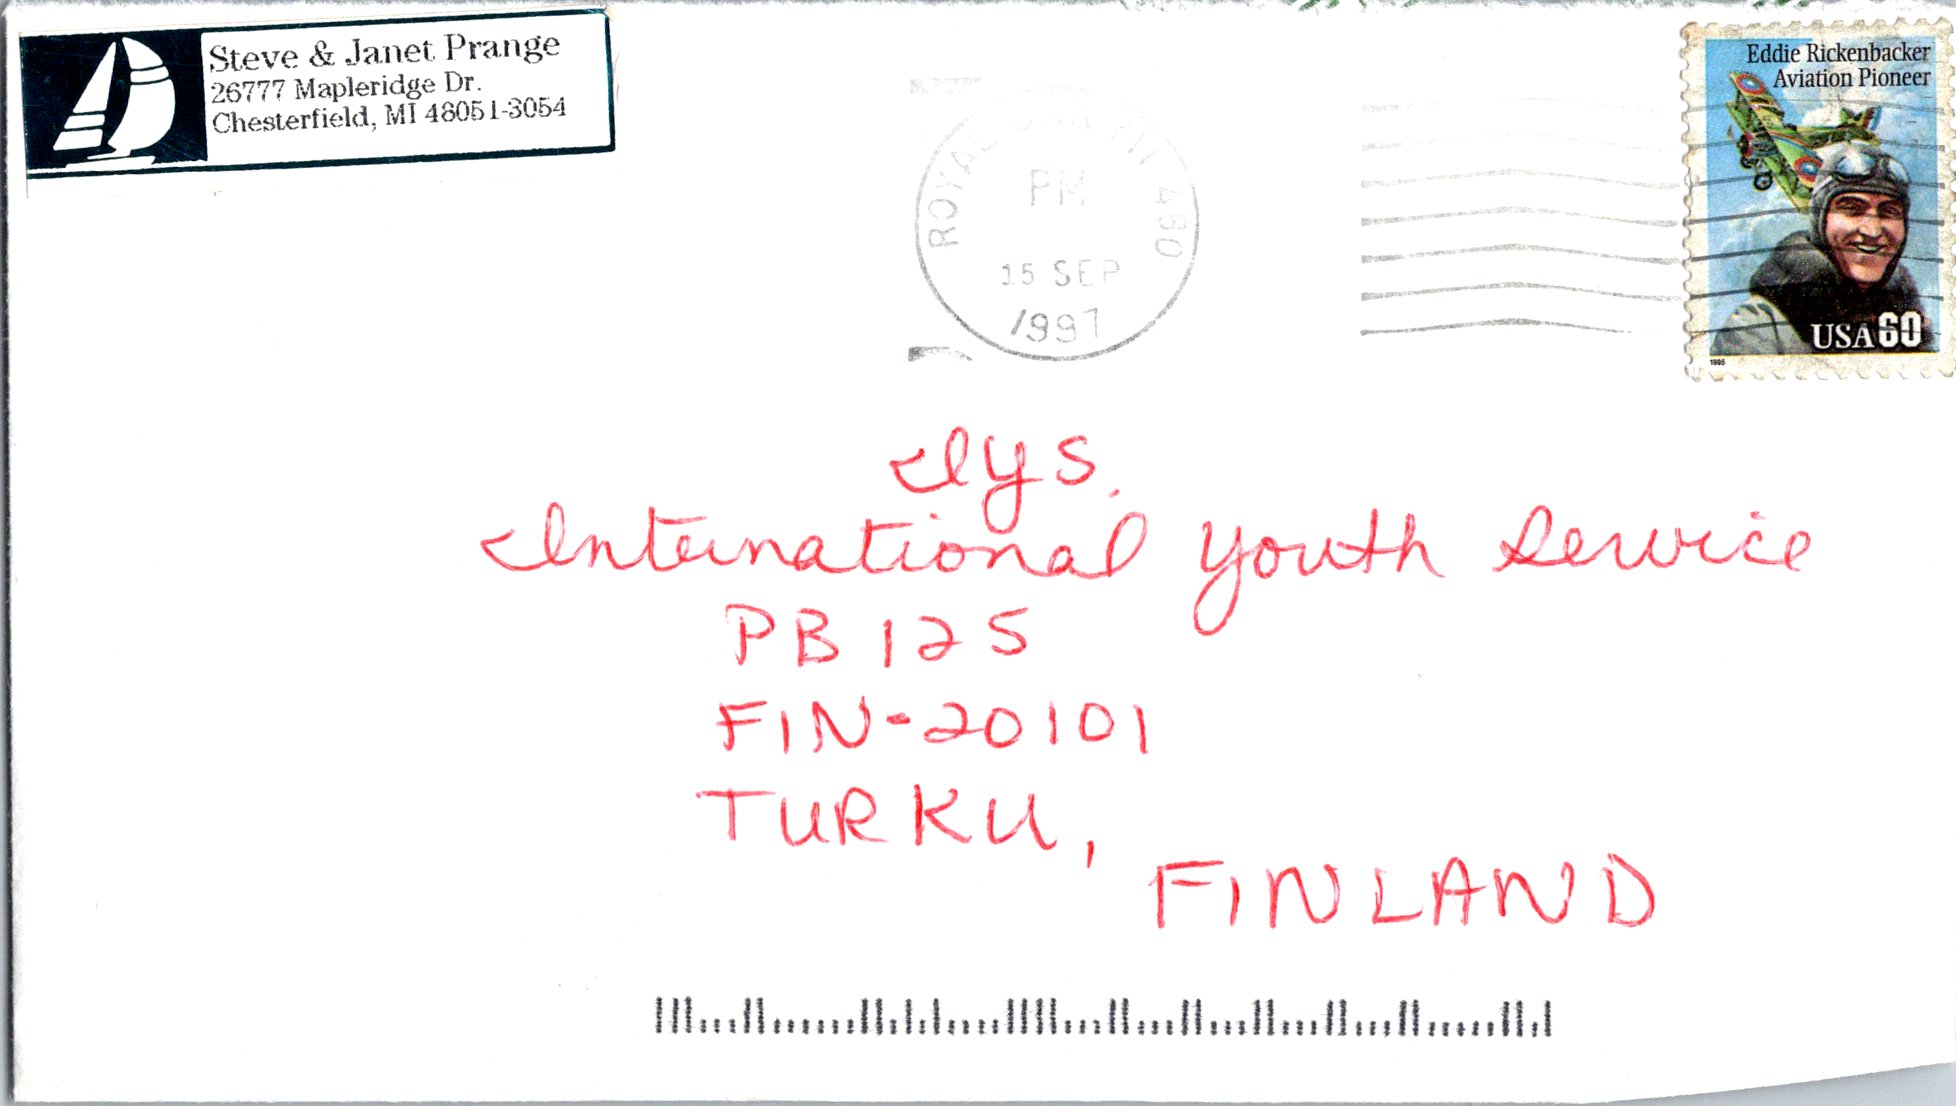 Steve & Janet Prange
26777 Mapleridge Dr.
Chesterfield, MI 48051-3054
ROYAL OAK MI 480
PM
15 SEP
1997
Eddie Rickenbacker
Aviation Pioneer
USA 60
1995
Iys.
International Youth Service
PB 125
FIN-20101
TURKU,
FINLAND